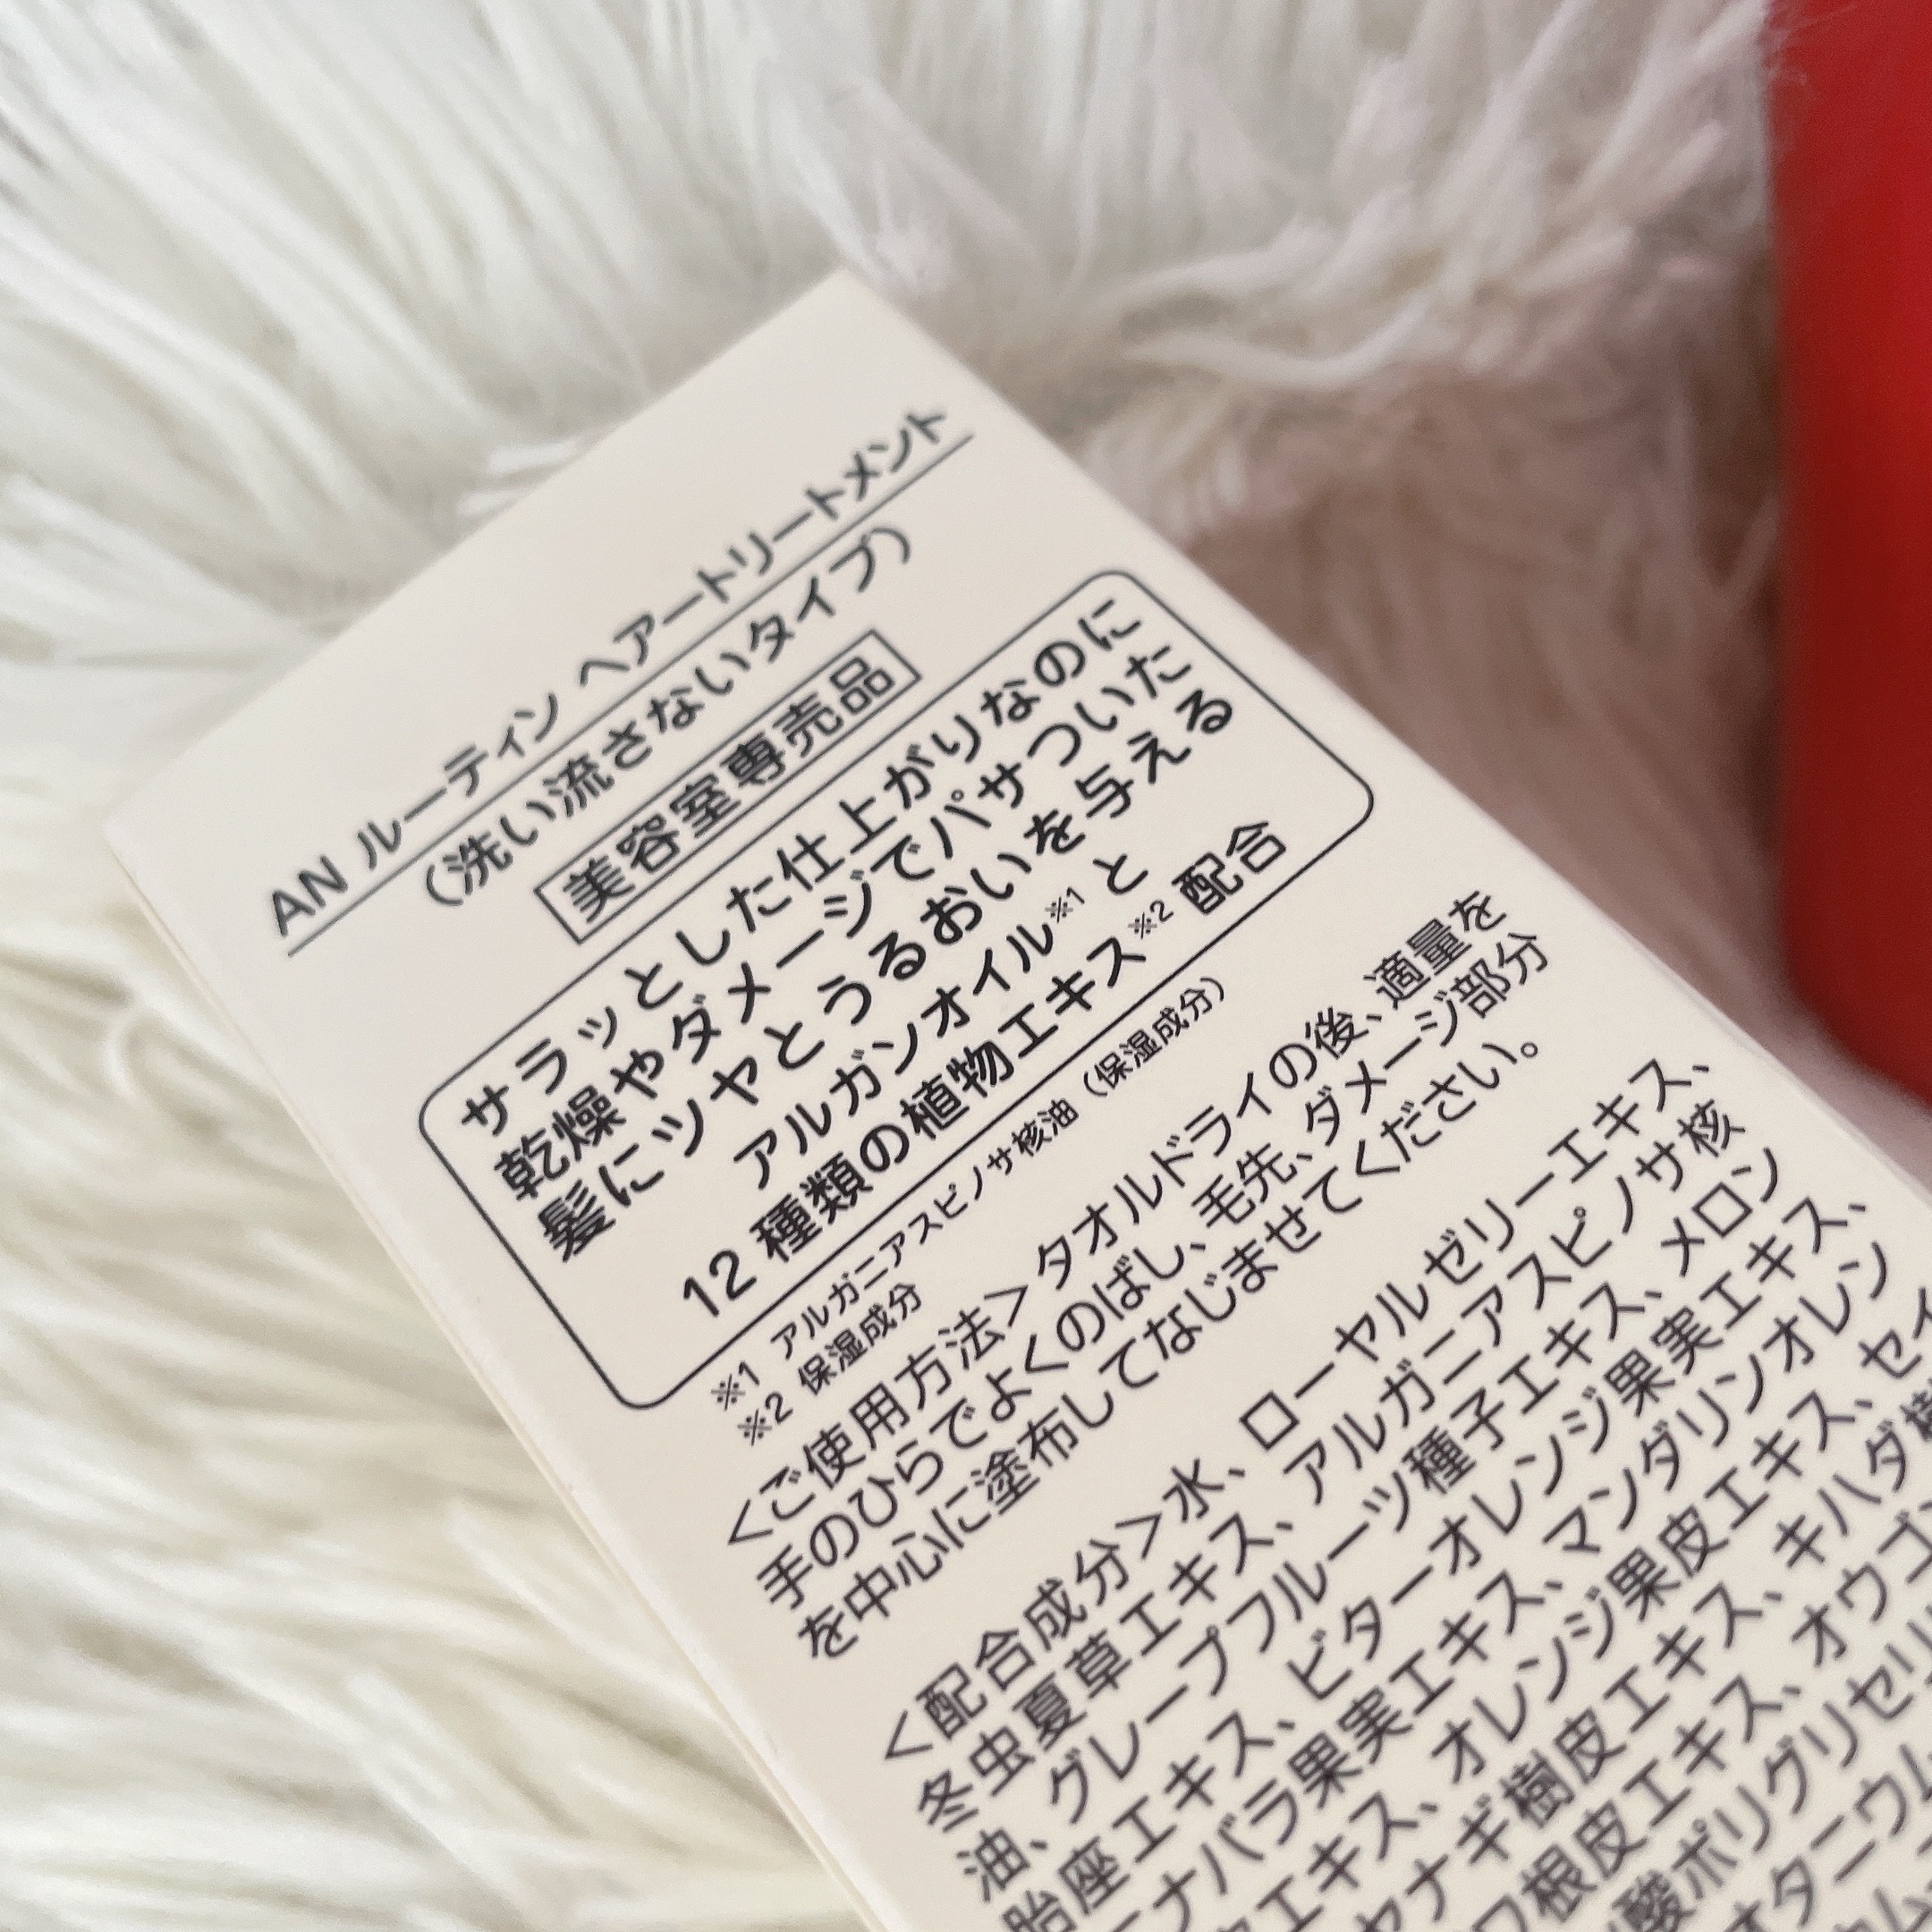 AN ルーティン ヘアートリートメント
（洗い流さないタイプ）
美容室専売品
サラッとした仕上がりなのに
乾燥やダメージでパサついた
髪にツヤとうるおいを与える
アルガンオイル※1 と
12 種類の植物エキス※2 配合
※1 アルガニアスピノサ核油（保湿成分）
※2 保湿成分
＜ご使用方法＞タオルドライの後、適量を
手のひらでよくのばし、毛先、ダメージ部分
を中心に塗布してなじませてください。
＜配合成分＞水、ローヤルゼリーエキス、
冬虫夏草エキス、アルガニアスピノサ核
油、グレープフルーツ種子エキス、メロン
胎座エキス、ビターオレンジ果実エキス、
ナバラ果実エキス、マンダリンオレン
エキス、オレンジ果皮エキス、セイ
ヤナギ樹皮エキス、キハダ樹
ワ根皮エキス、オウゴ
酸ポリグリセリ
オタニウム